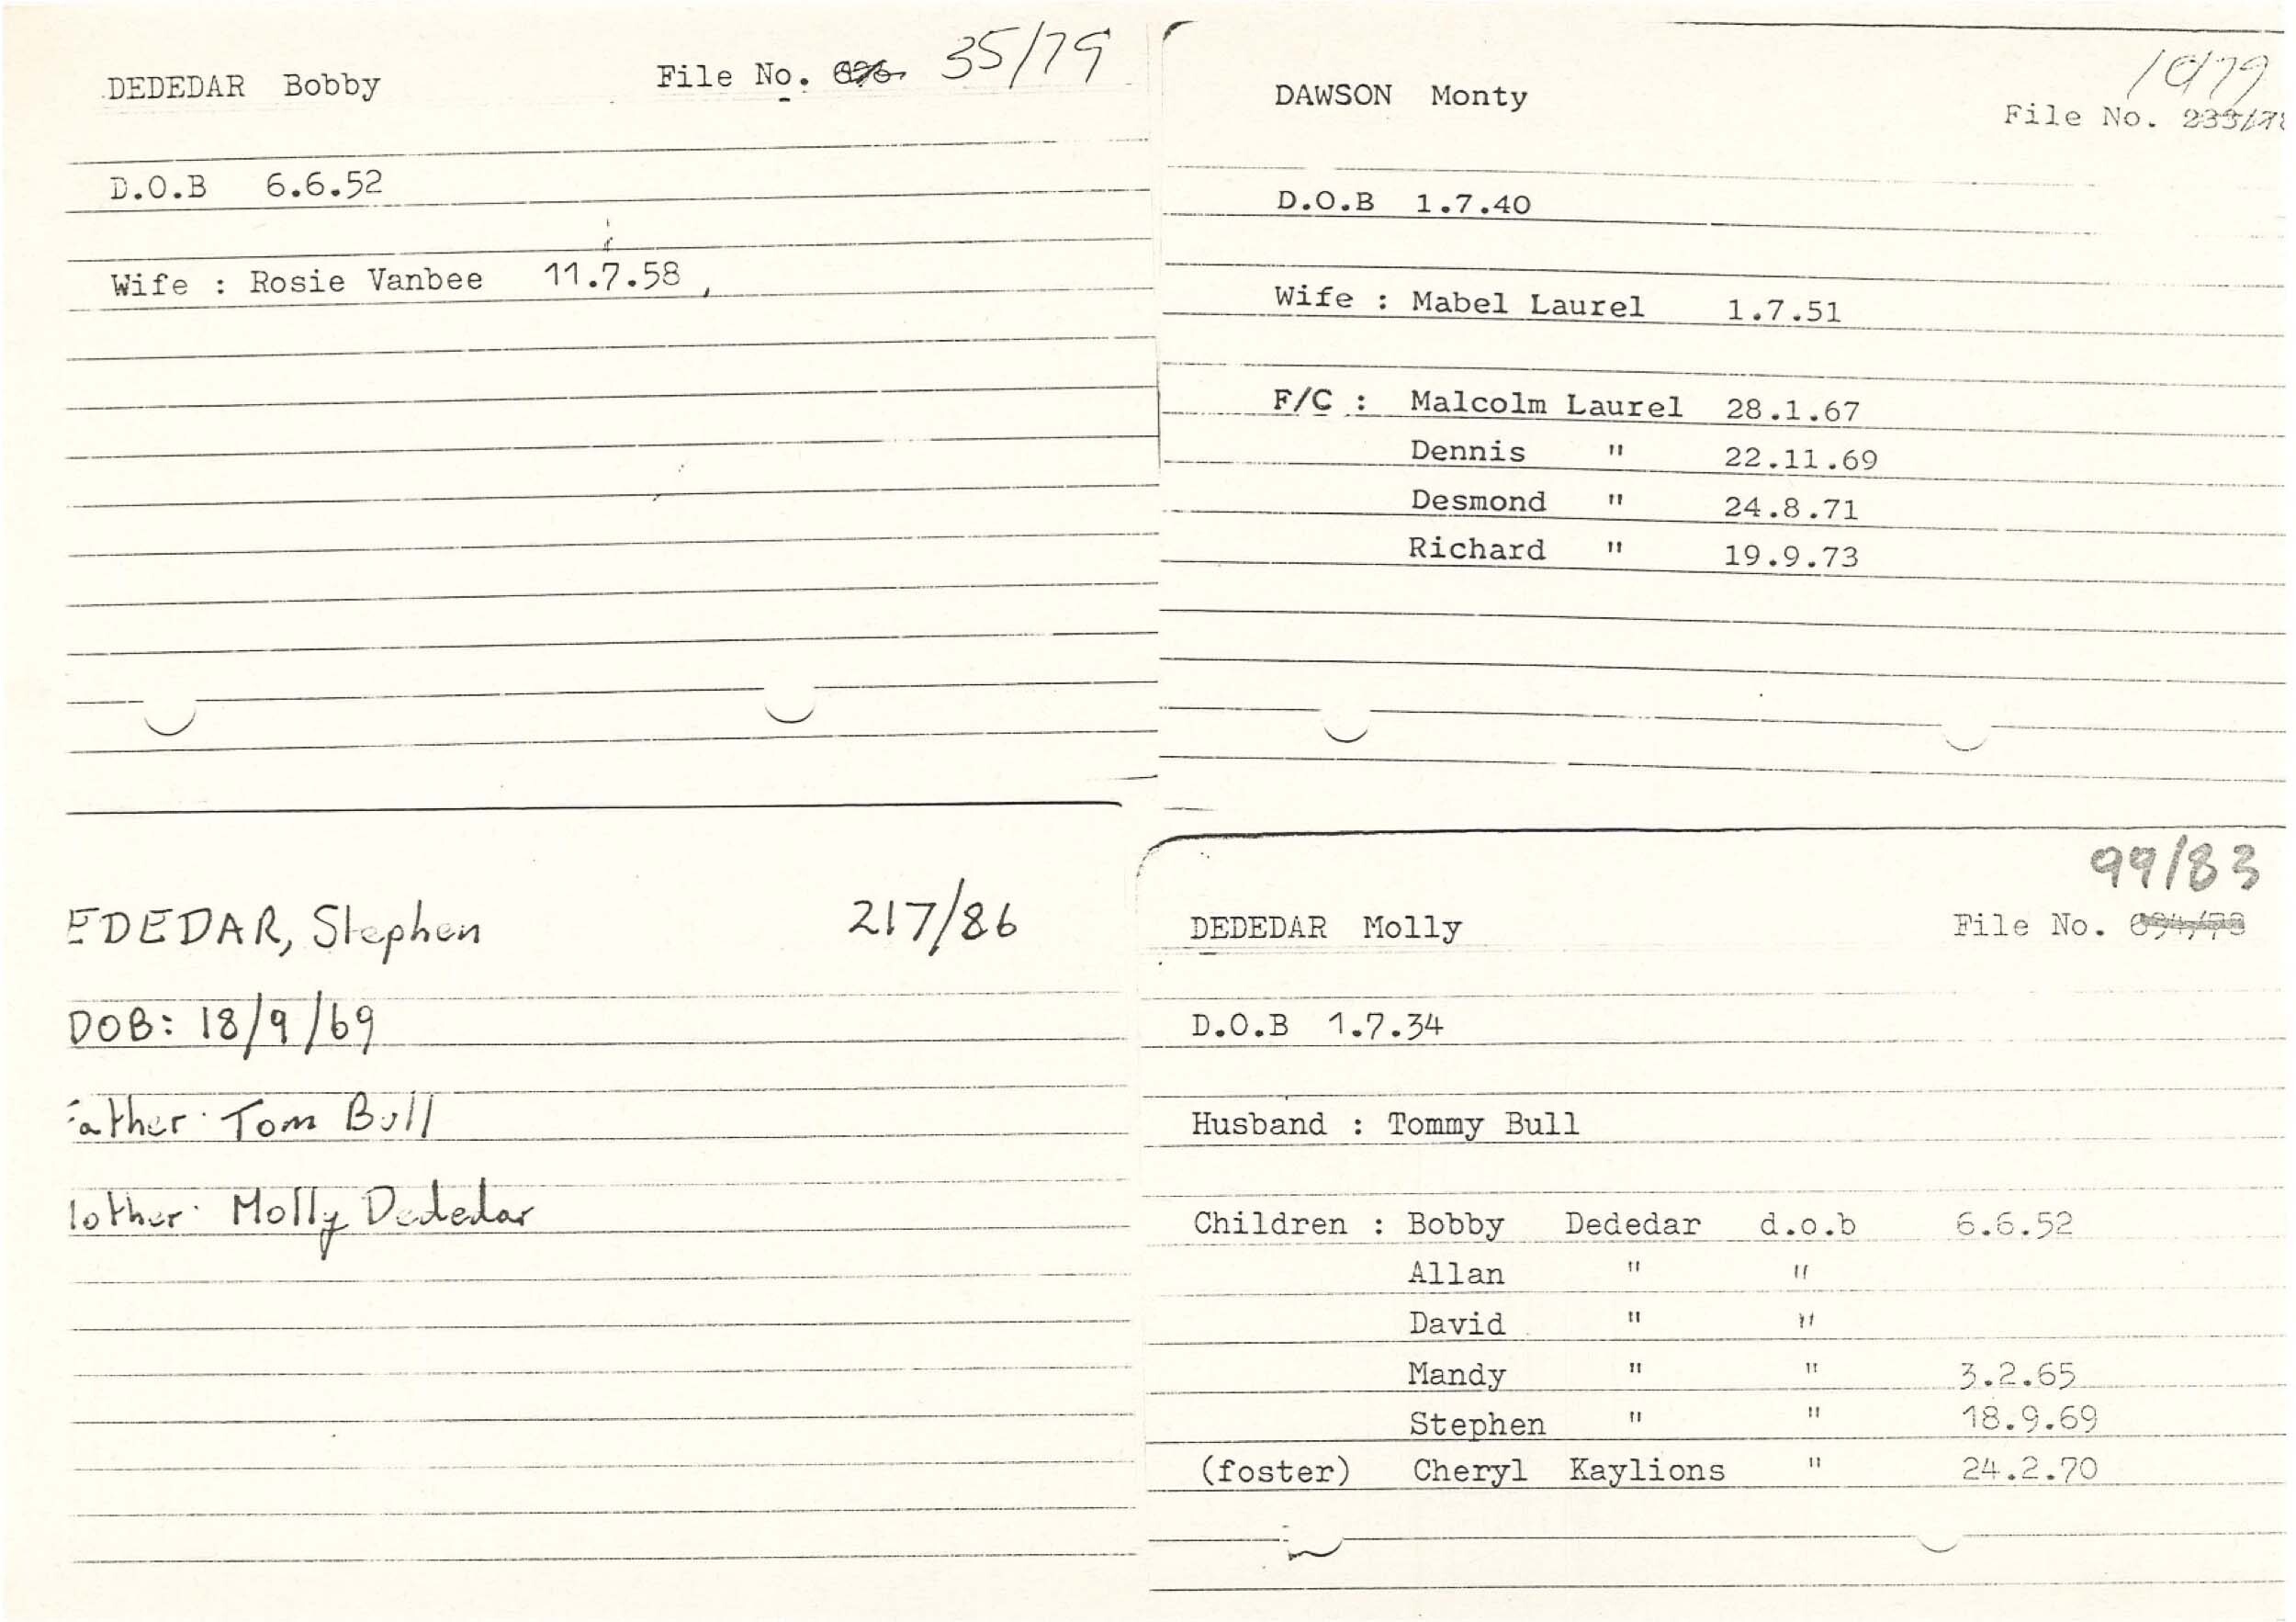 DEDEDAR Bobby File No. 35/79
D.O.B 6.6.52
Wife : Rosie Vanbee 11.7.58
DAWSON Monty
10/79
File No. 233/78
D.O.B 1.7.40
Wife : Mabel Laurel 1.7.51
F/C : Malcolm Laurel 28.1.67
Dennis " 22.11.69
Desmond " 24.8.71
Richard " 19.9.73
EDEDAR, Stephen 217/86
DOB: 18/9/69
ather: Tom Bull
other: Molly Dededar
99/83
DEDEDAR Molly File No.
D.O.B 1.7.34
Husband : Tommy Bull
Children : Bobby Dededar d.o.b 6.6.52
Allan " "
David " "
Mandy " " 3.2.65
Stephen " " 18.9.69
(foster) Cheryl Kaylions " 24.2.70